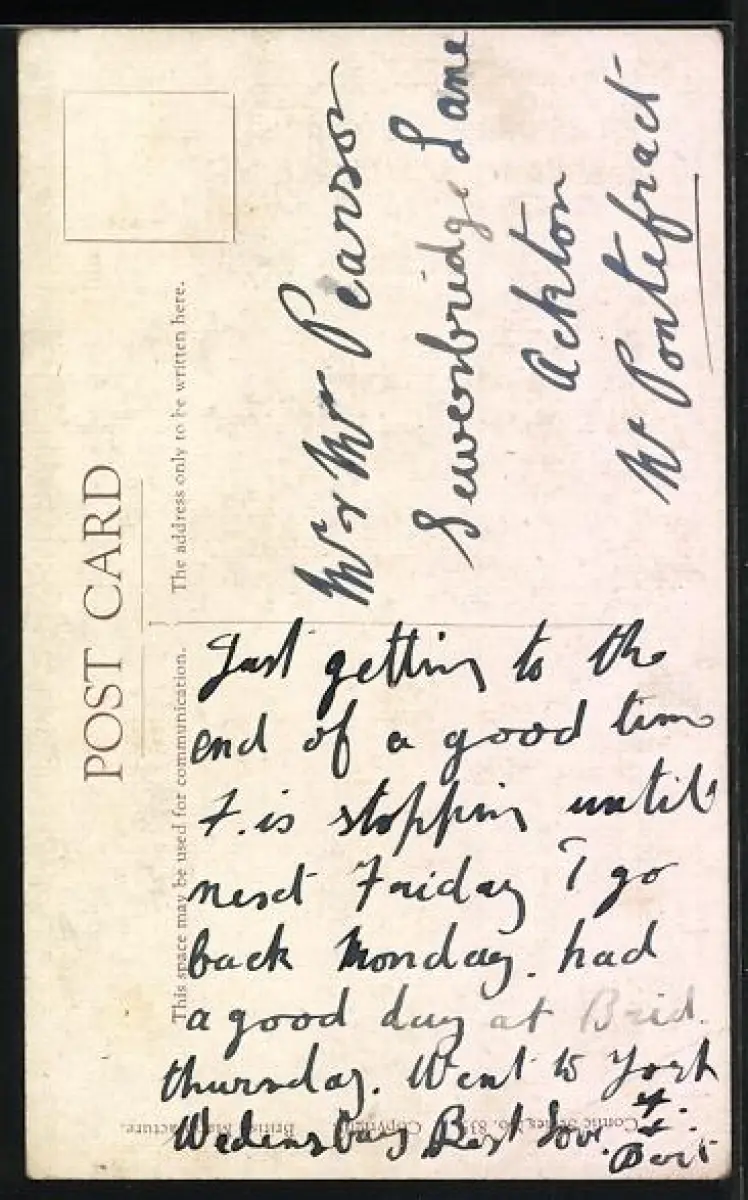 POST CARD
This space may be used for communication.
The address only to be written here.
Just getting to the
end of a good time
F. is stopping until
next Friday I go
back Monday. had
a good day at Brid.
thursday. Went to York
Wedensday Best Love.
F. &
Mr & Mrs Pearson
Sewerbridge Lane
Ackton
Nr Pontefract
British Manufacture.
Copyright.